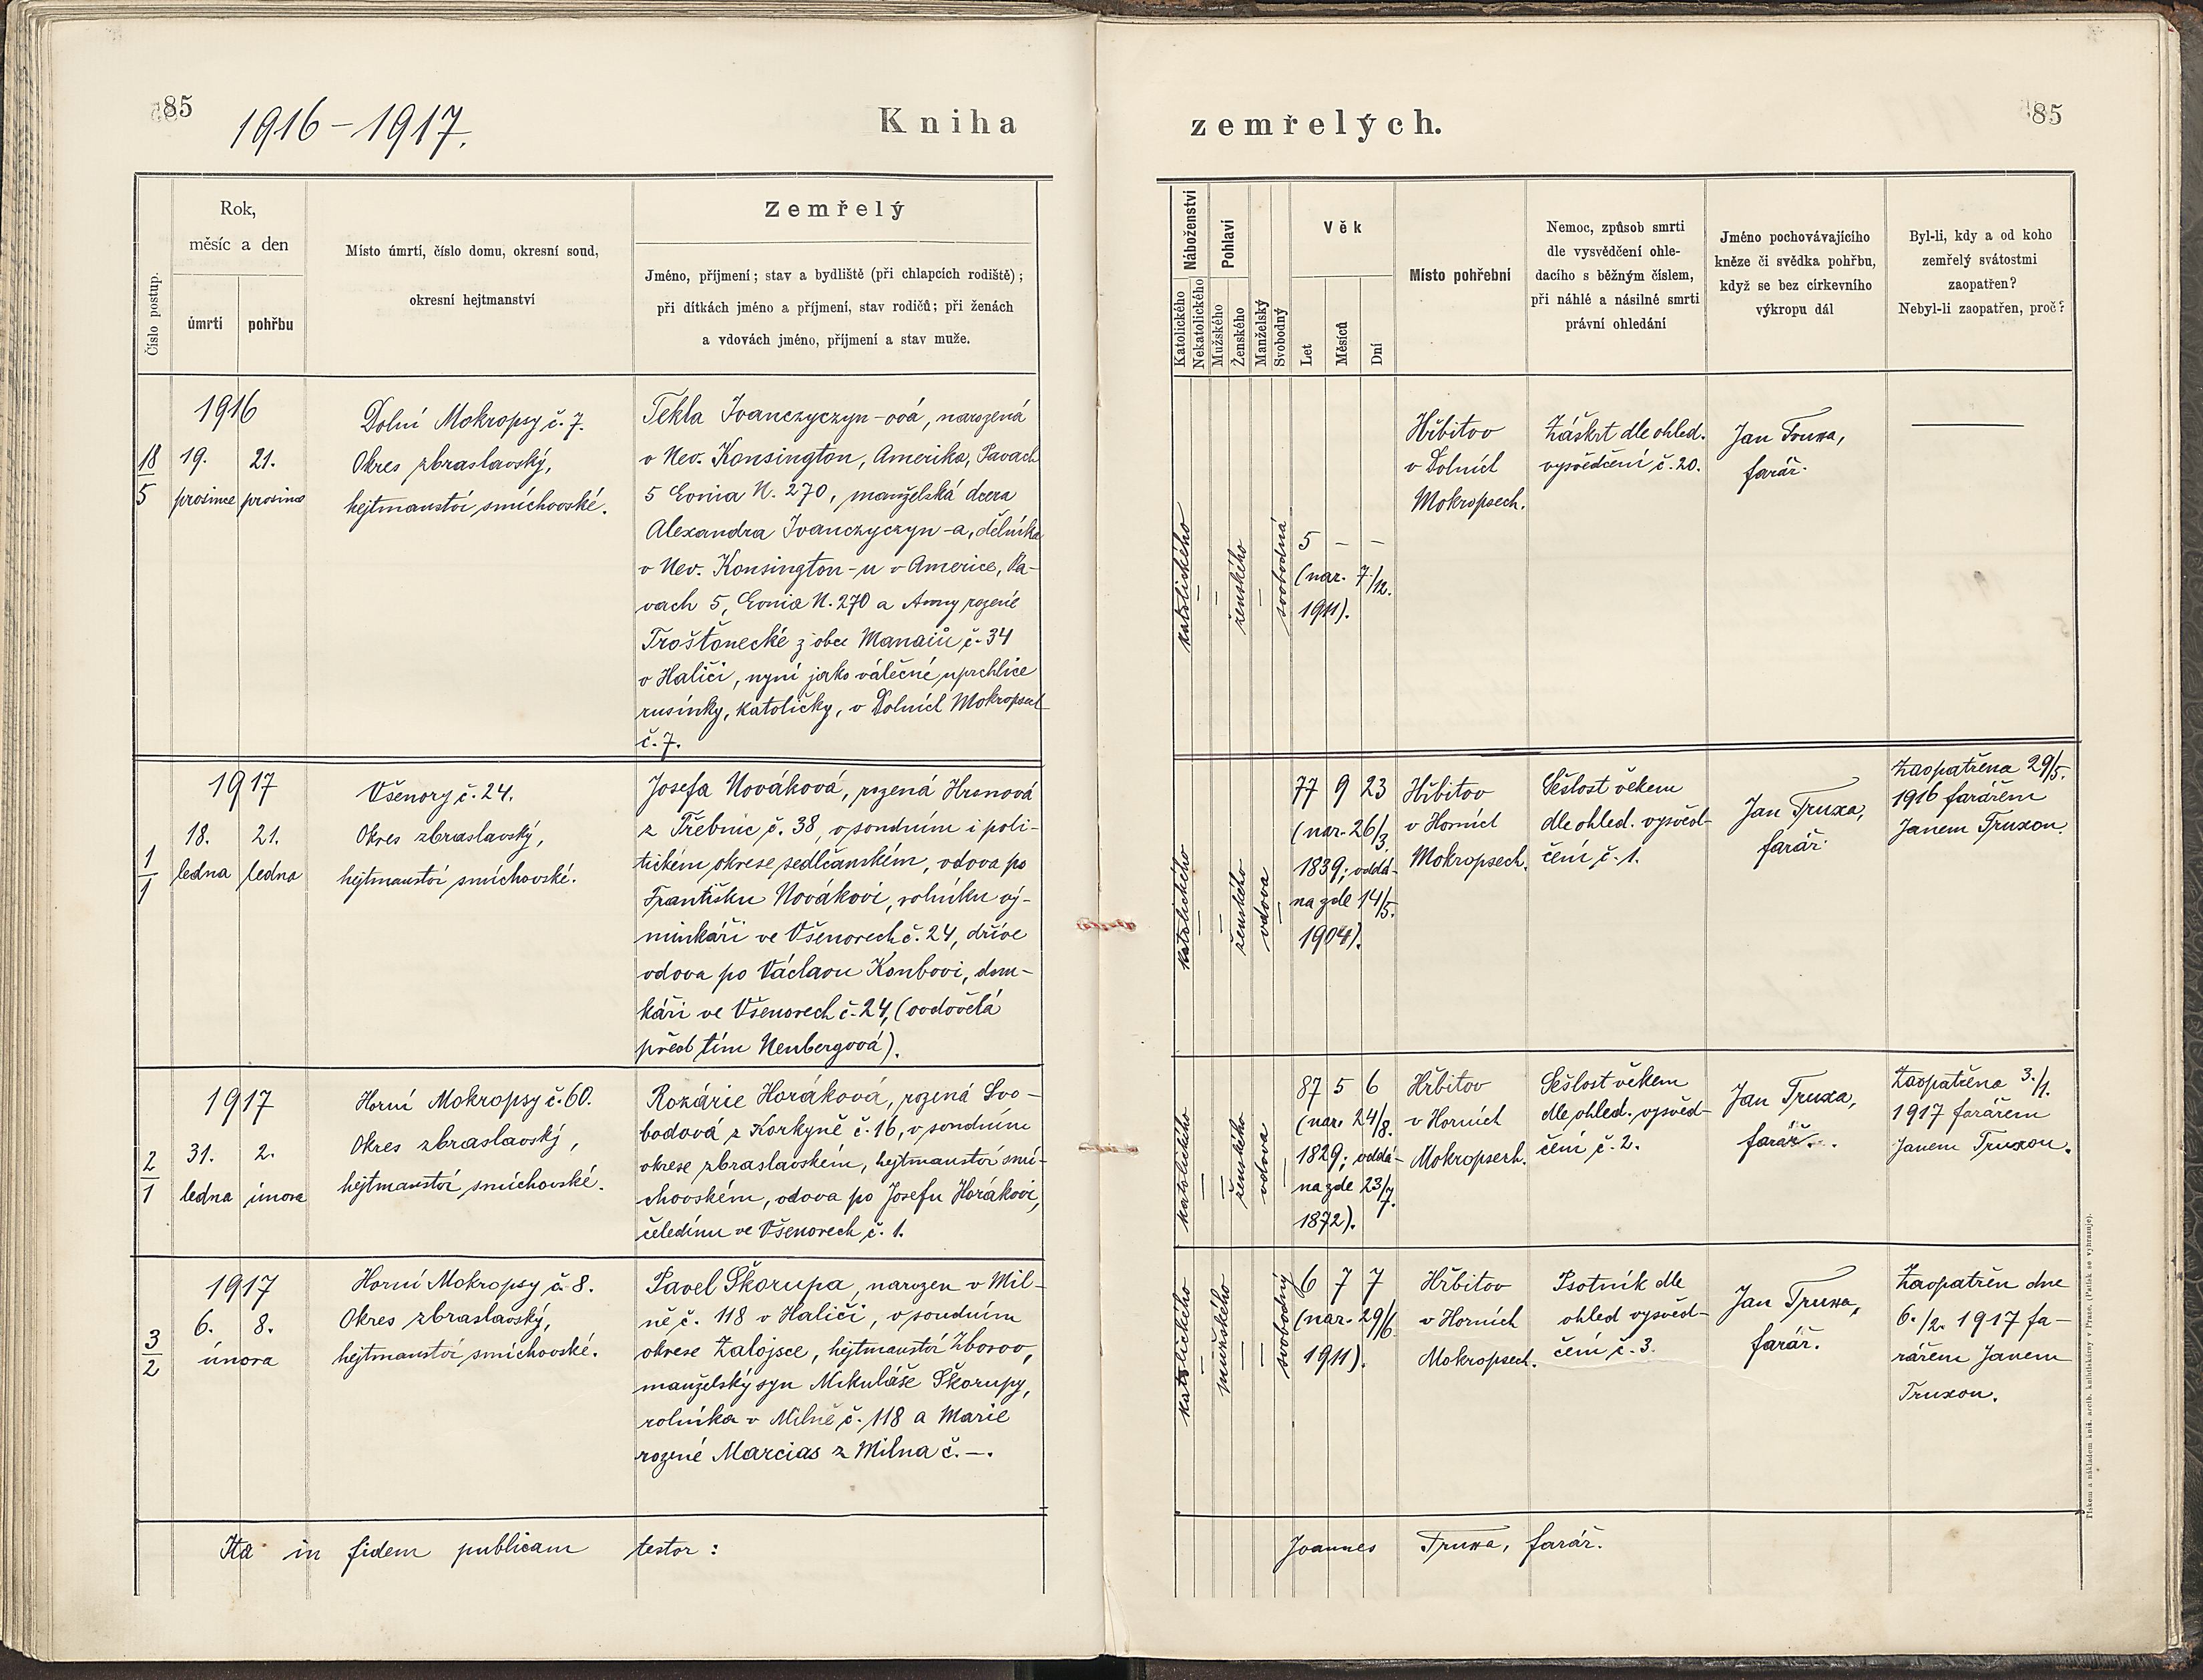 85
1916-1917.
Kniha
zemřelých.
85
Číslo postup.
Rok,
měsíc a den
úmrtí
pohřbu
Místo úmrtí, číslo domu, okresní soud,
okresní hejtmanství
Zemřelý
Jméno, příjmení; stav a bydliště (při chlapcích rodiště);
při dítkách jméno a příjmení, stav rodičů; při ženách
a vdovách jméno, příjmení a stav muže.
Náboženství
Katolického
Nekatolického
Pohlaví
Mužského
Ženského
Manželský
Svobodný
Věk
Let
Měsíců
Dní
Místo pohřební
Nemoc, způsob smrti
dle vysvědčení ohle-
dacího s běžným číslem,
při náhlé a násilné smrti
právní ohledání
Jméno pochovávajícího
kněze či svědka pohřbu,
když se bez církevního
výkropu dál
Byl-li, kdy a od koho
zemřelý svátostmi
zaopatřen?
Nebyl-li zaopatřen, proč?
18
5
1916
19. 21.
prosince prosince
Dolní Mokropsy č. 7.
Okres zbraslavský,
hejtmanství smíchovské.
Tekla Ivanczyczyn-ová, narozená
v Nev. Konsington, Amerika, Pavach
5 Eonia N. 270, manželská dcera
Alexandra Ivanczyczyn-a, dělníka
v Nev. Konsington-u v Americe, Pa-
vach 5, Eonia N. 270 a Anny rozené
Troštonecké z obce Manaiů č. 34
v Haliči, nyní jako válečné uprchlice
rusínky, katoličky, v Dolních Mokropsech
č. 7.
katolického
—
—
ženského
—
svobodná
5 — —
(nar. 7./12.
1911).
Hřbitov
v Dolních
Mokropsech.
Záškrt dle ohled.
vysvědčení č. 20.
Jan Truxa,
farář.
—
1
1
1917
18. 21.
ledna ledna
Všenory č. 24.
Okres zbraslavský,
hejtmanství smíchovské.
Josefa Nováková, rozená Hronová
z Třebnic č. 38, v soudním i poli-
tickém okrese sedlčanském, vdova po
Františku Novákovi, rolníku vý-
minkáři ve Všenorech č. 24, dříve
vdova po Václavu Koubovi, dom-
káři ve Všenorech č. 24, (ovdovělá
před tím Neubergová).
katolického
—
—
ženského
vdova
—
77 9 23
(nar. 26/3.
1839; oddá-
na zde 14/5.
1904).
Hřbitov
v Horních
Mokropsech.
Sešlost věkem
dle ohled. vysvěd-
čení č. 1.
Jan Truxa,
farář.
Zaopatřena 29/5.
1916 farářem
Janem Truxou.
2
1
1917
31. 2.
ledna února
Horní Mokropsy č. 60.
Okres zbraslavský,
hejtmanství smíchovské.
Rozárie Horáková, rozená Svo-
bodová z Korkyně č. 16, v soudním
okrese zbraslavském, hejtmanství smí-
chovském, vdova po Josefu Horákovi,
čeledínu ve Všenorech č. 1.
katolického
—
—
ženského
vdova
—
87 5 6
(nar. 24/8.
1829; oddá-
na zde 23/7.
1872).
Hřbitov
v Horních
Mokropsech.
Sešlost věkem
dle ohled. vysvěd-
čení č. 2.
Jan Truxa,
farář.
Zaopatřena 3./1.
1917 farářem
Janem Truxou.
3
2
1917
6. 8.
února
Horní Mokropsy č. 8.
Okres zbraslavský,
hejtmanství smíchovské.
Pavel Škorupa, narozen v Mil-
ně č. 118 v Haliči, v soudním
okrese Zalojsce, hejtmanství Zborov,
manželský syn Mikuláše Škorupy,
rolníka v Milně č. 118 a Marie
rozené Marcias z Milna č. —.
katolického
—
mužského
—
—
svobodný
6 7 7
(nar. 29/6.
1911).
Hřbitov
v Horních
Mokropsech.
Psotník dle
ohled vysvěd-
čení č. 3.
Jan Truxa,
farář.
Zaopatřen dne
6./2. 1917 fa-
rářem Janem
Truxou.
Ita in fidem publicam testor:
Joannes Truxa, farář.
Tiskem a nákladem kníž. arcib. knihtiskárny v Praze. (Patisk se vyhrazuje).